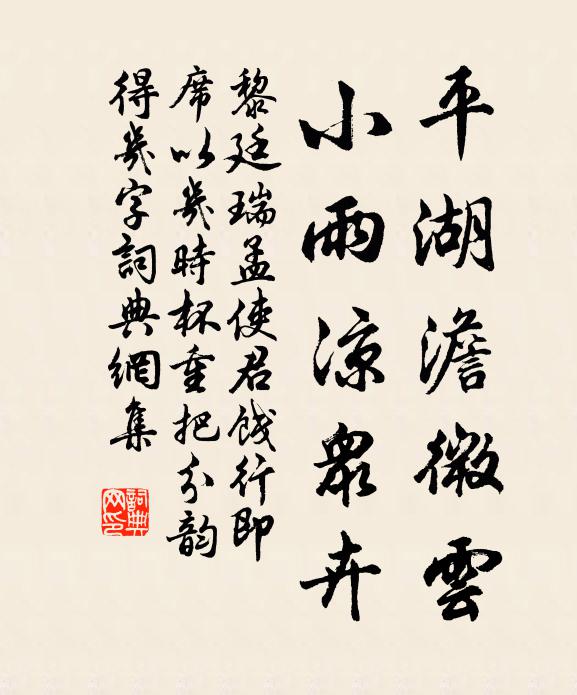 平湖澹微雲
小雨涼眾卉
黎廷瑞孟使君餞行即
席以幾時杯重把分韵
得幾字詞典網集
詞典
网印